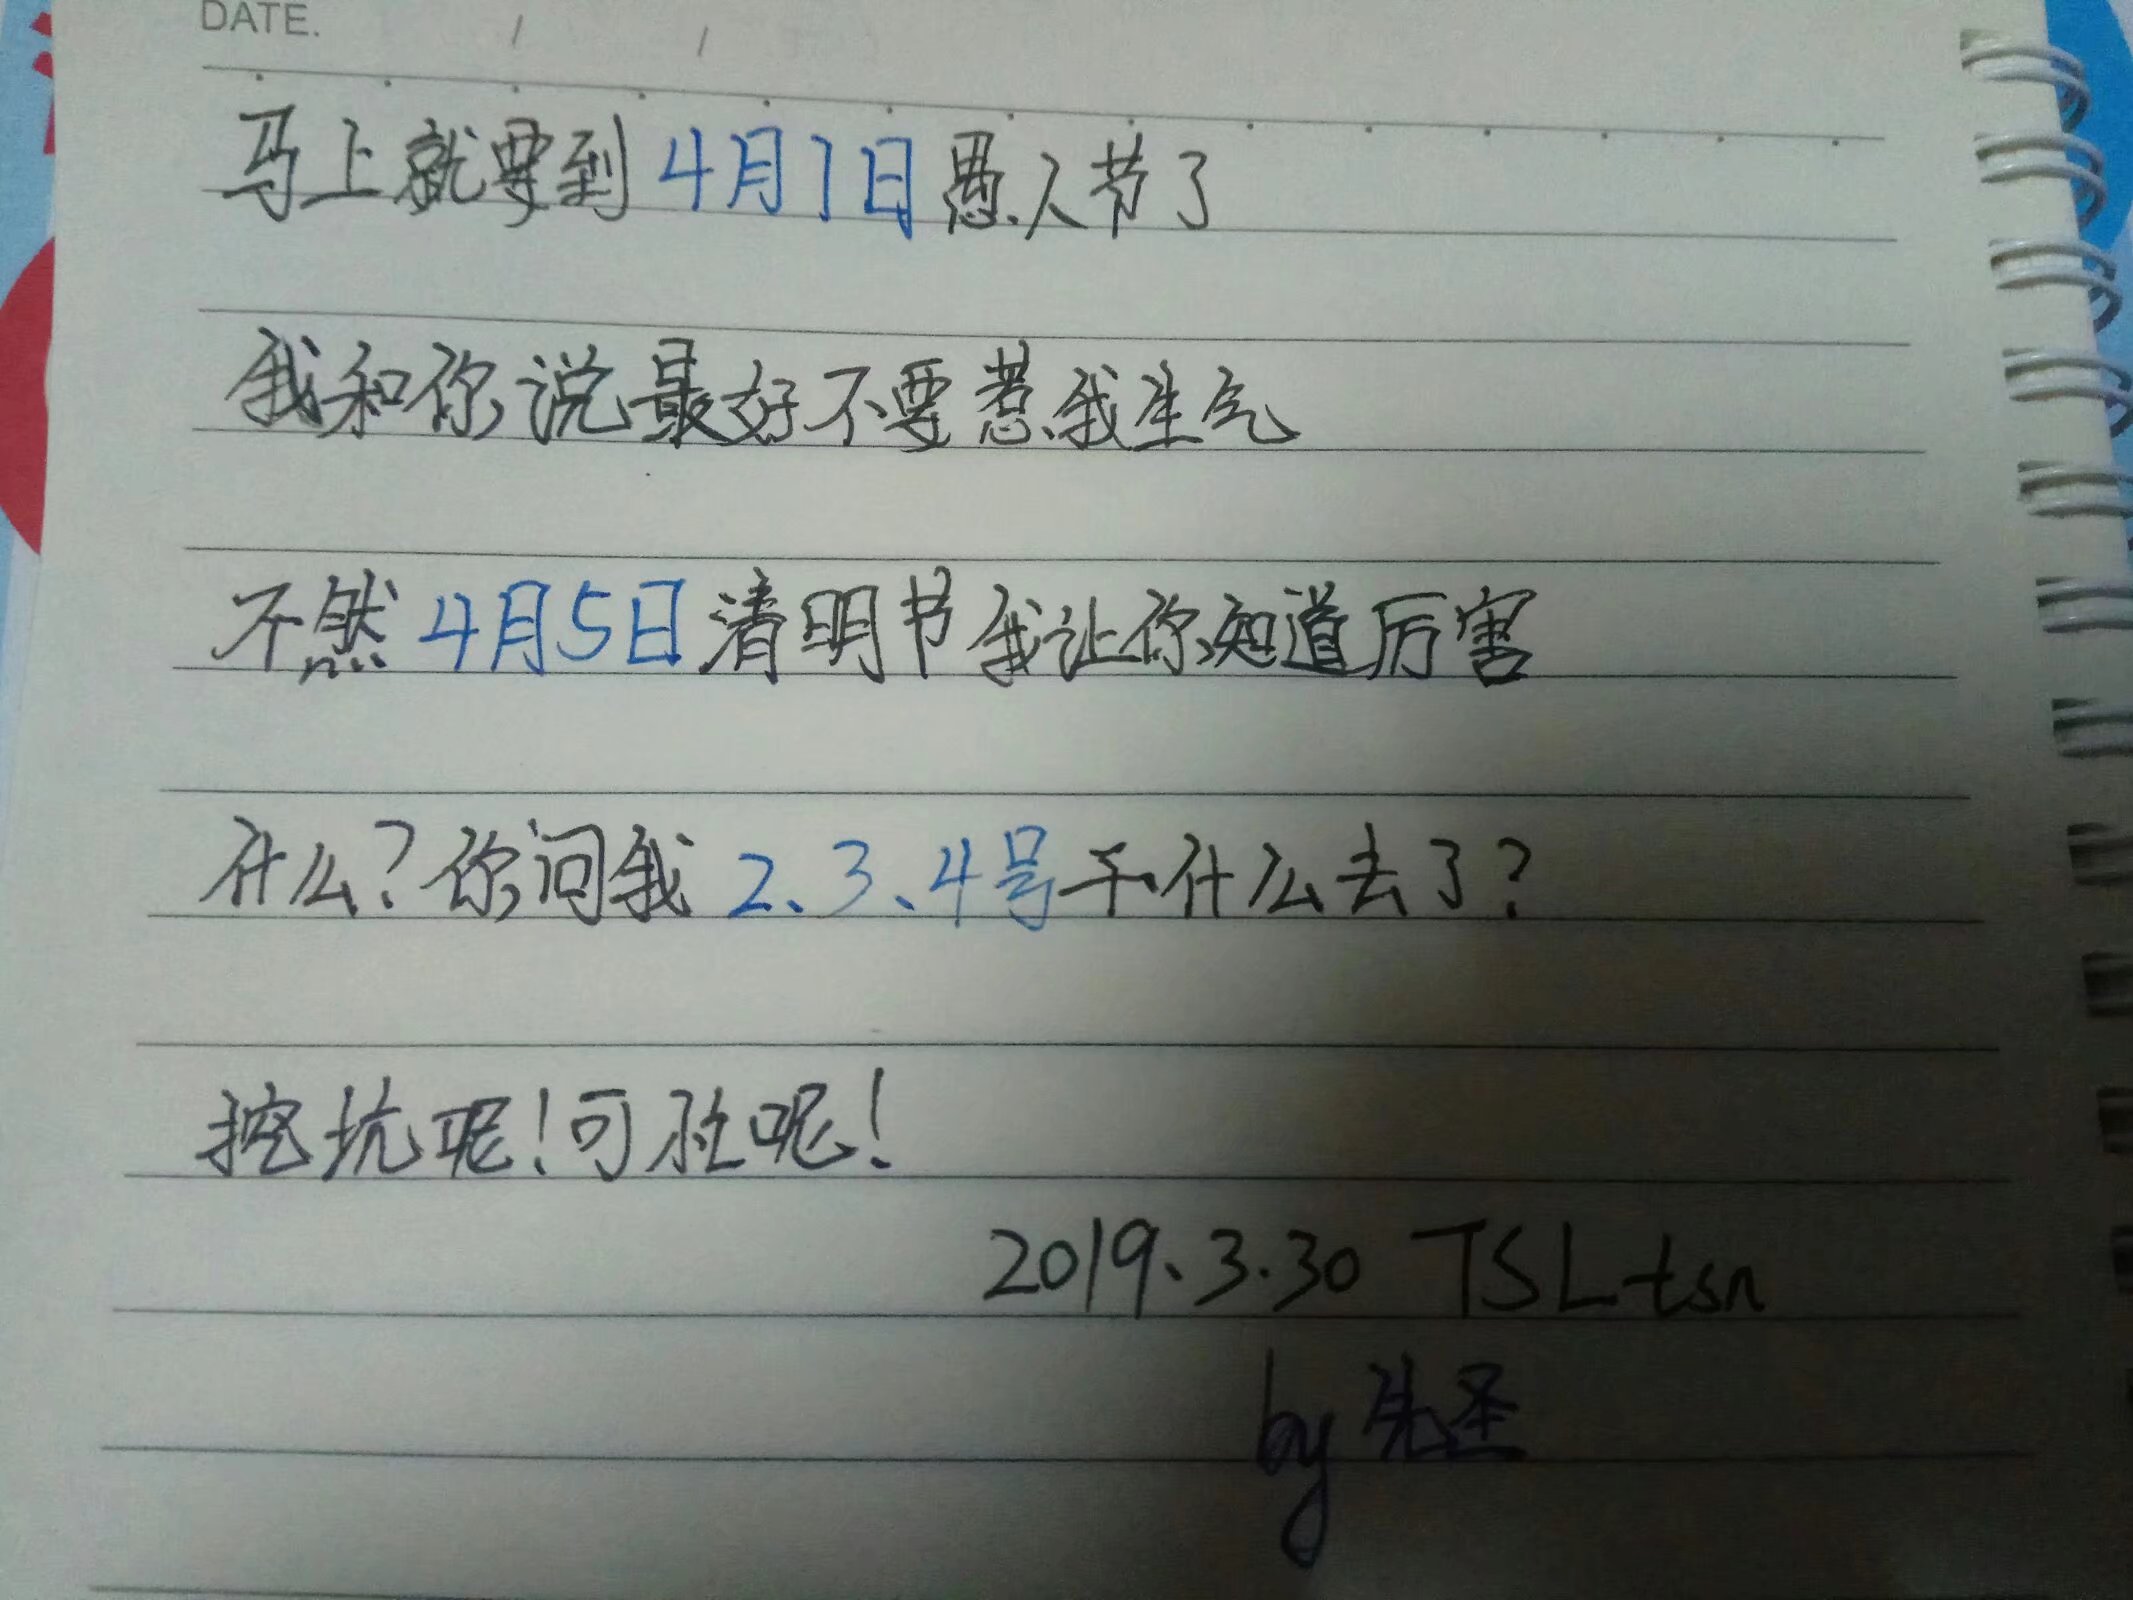 DATE. / /
马上就要到4月1日愚人节了
我和你说最好不要惹我生气
不然4月5日清明节我让你知道厉害
什么?你问我2、3、4号干什么去了?
挖坑呢!可深呢!
2019.3.30 TSL-tsn
by 先圣